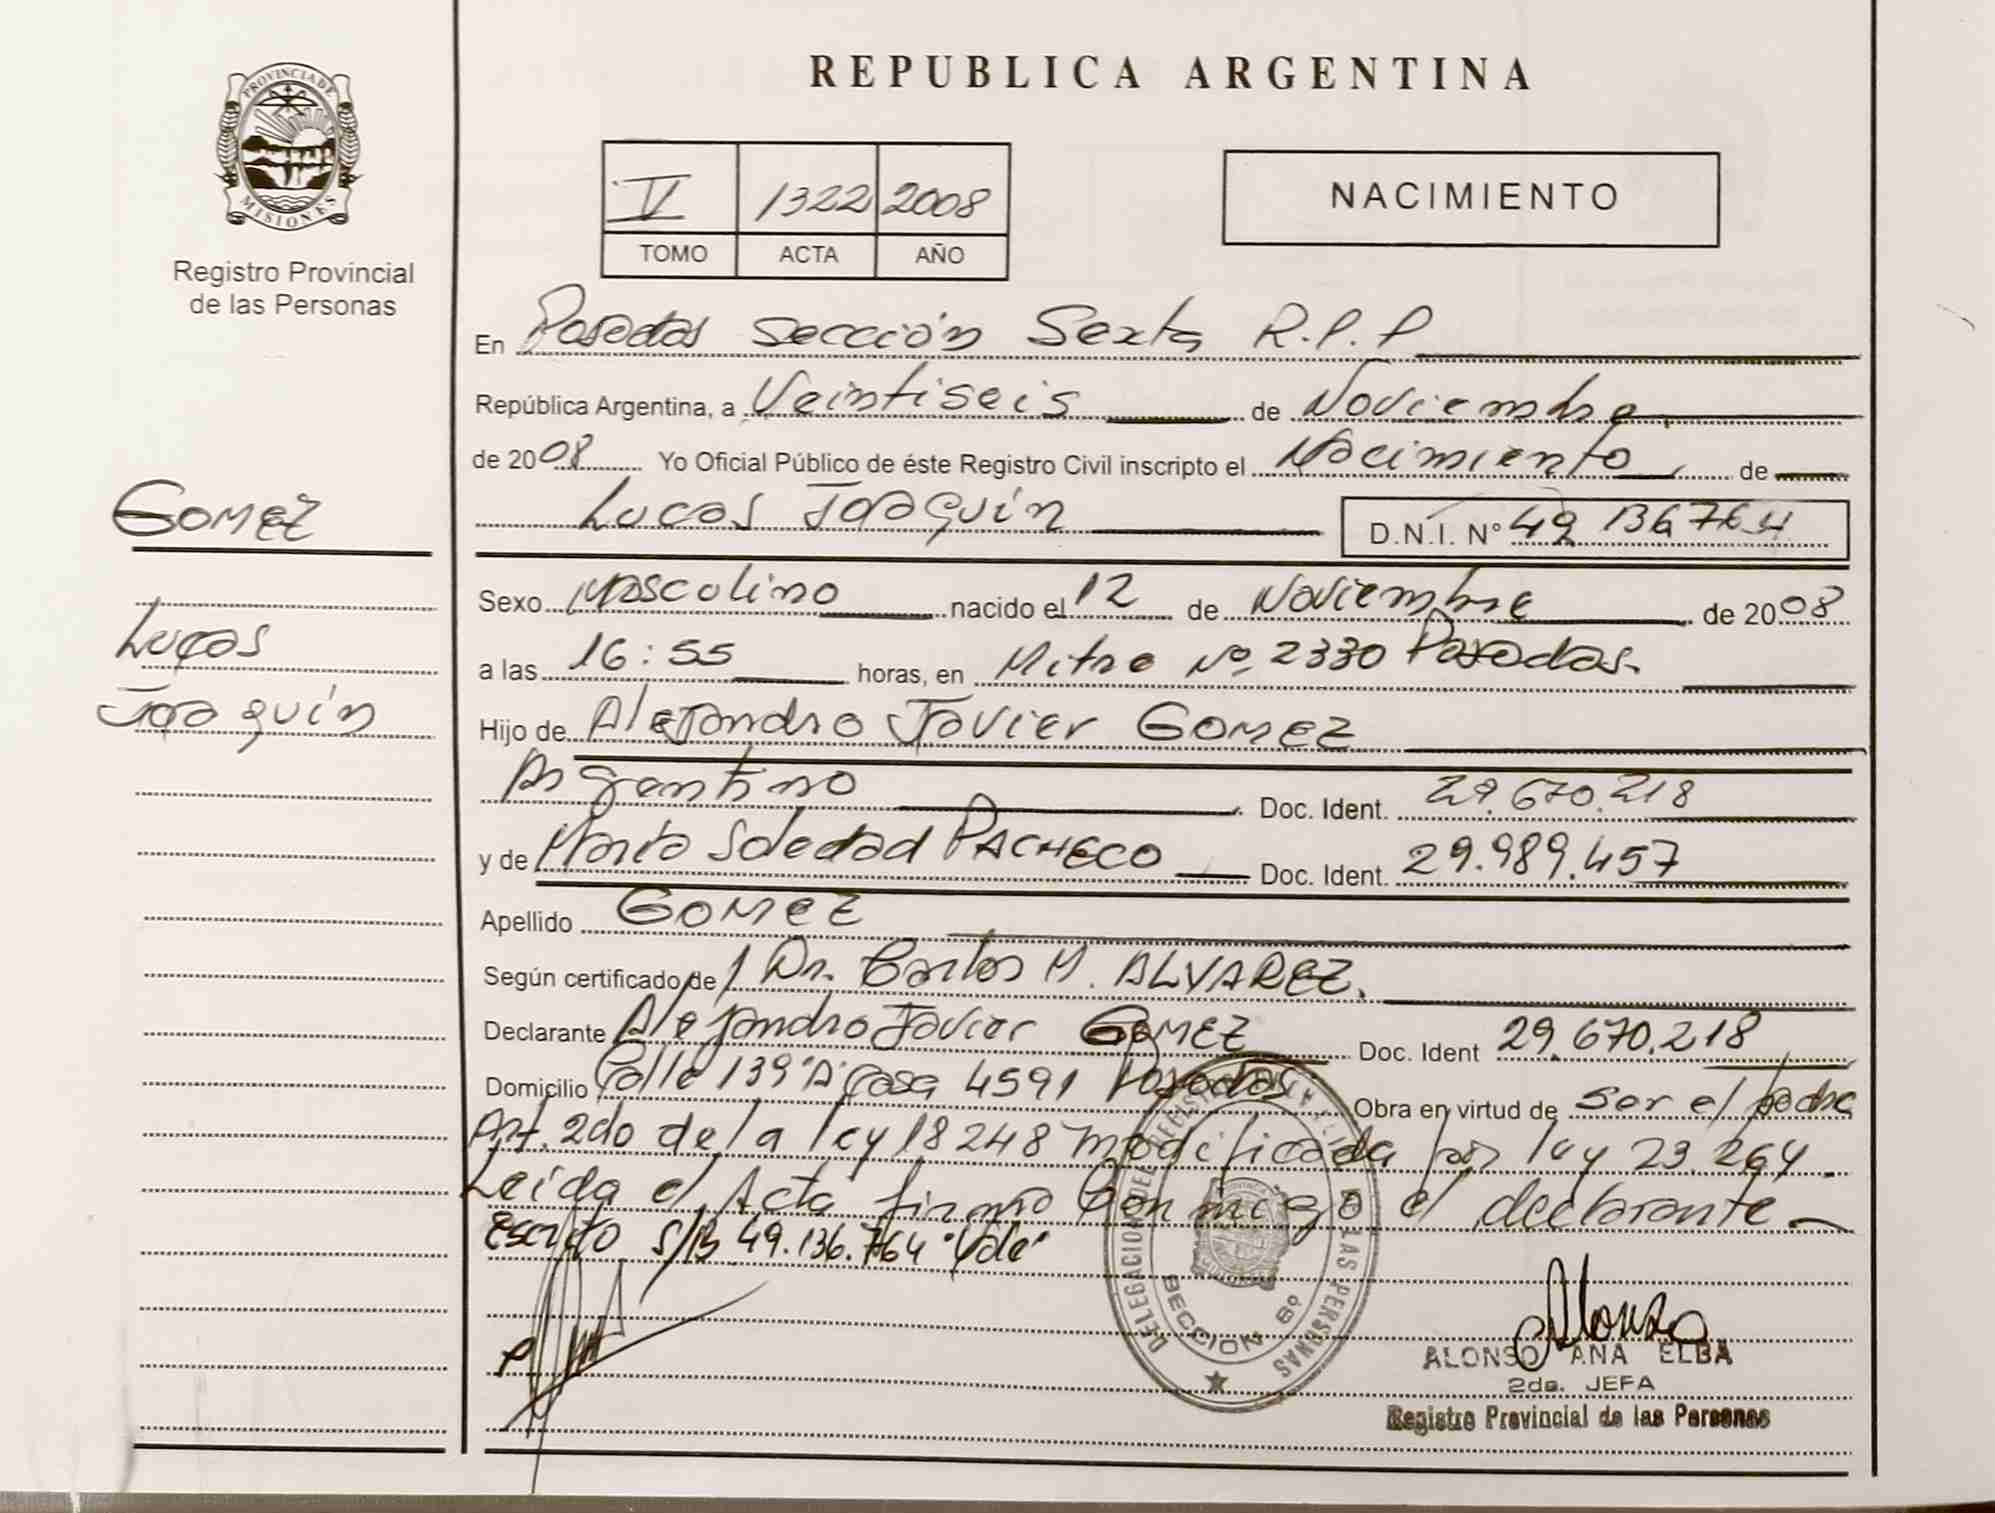 REPUBLICA ARGENTINA
PROVINCIA DE
MISIONES
Registro Provincial
de las Personas
V 1322 2008
TOMO ACTA AÑO
NACIMIENTO
En Posadas Sección Sexta R.P.P
República Argentina, a Veintiseis de Noviembre
de 2008 Yo Oficial Público de éste Registro Civil inscripto el Nacimiento de
Lucas Joaquín D.N.I. Nº 49 136764
GOMEZ
Lucas
Joaquín
Sexo Masculino nacido el 12 de Noviembre de 2008
a las 16:55 horas, en Mitre Nº 2330 Posadas.
Hijo de Alejandro Javier GOMEZ
Argentino Doc. Ident. 29.670.218
y de María Soledad PACHECO Doc. Ident. 29.989.457
Apellido GOMEZ
Según certificado de Dr. Carlos M. ALVAREZ.
Declarante Alejandro Javier GOMEZ Doc. Ident 29.670.218
Domicilio Calle 139 "A" Casa 4591 Posadas Obra en virtud de ser el padre
Art. 2do de la ley 18248 modificada por ley 23.264.
Leída el Acta firma conmigo el declarante
Escrito S/B 49.136.764 "Vale"
DELEGACION DEL REGISTRO DE LAS PERSONAS
SECCION 6º
Alonso
ALONSO ANA ELBA
2da. JEFA
Registro Provincial de las Personas